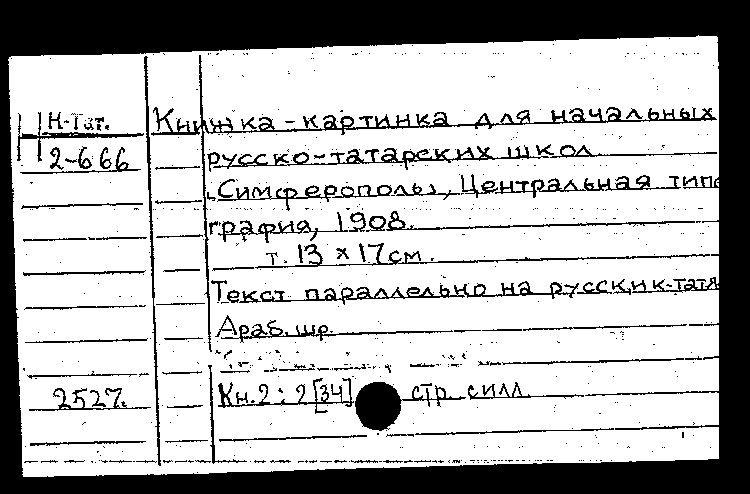 Н-Тат.
2-666
Книжка-картинка для начальных
русско-татарских школ
"Симферополь", Центральная типо
графия, 1908.
т. 13 x 17см.
Текст параллельно на русск. и к-татя
Араб. шр.
2527.
Кн. 2 : 2 [34] стр. с илл.